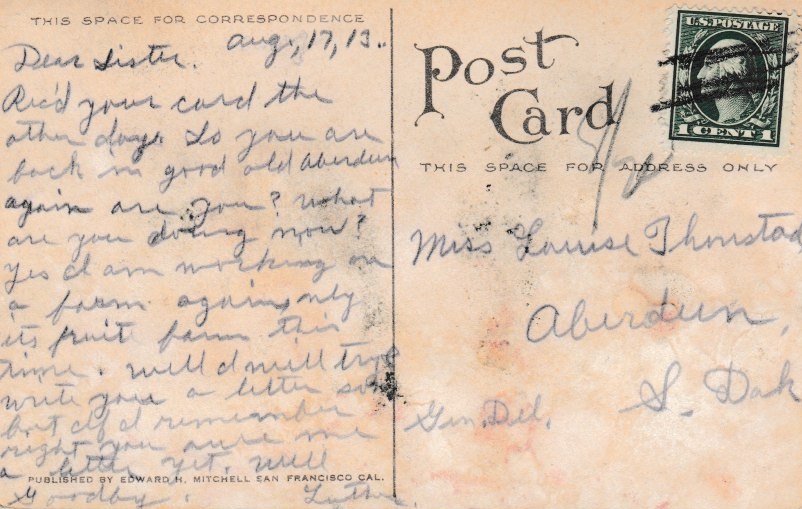 THIS SPACE FOR CORRESPONDENCE
Aug, 17, 13.
Dear Sister.
Rec'd your card the
other day. So you are
back in good old Aberdeen
again are you? What
are you doing now?
Yes I am working on
a farm again, only
its fruit farm this
time. Well I will try
write you a letter
but if I remember
right you owe me
a letter yet. Well
PUBLISHED BY EDWARD H. MITCHELL SAN FRANCISCO CAL.
Goodby. Luther
Post
Card
U.S. POSTAGE
1 CENT 1
THIS SPACE FOR ADDRESS ONLY
Miss Louise Thonstad
Aberdeen,
S. Dak
Gen. Del.